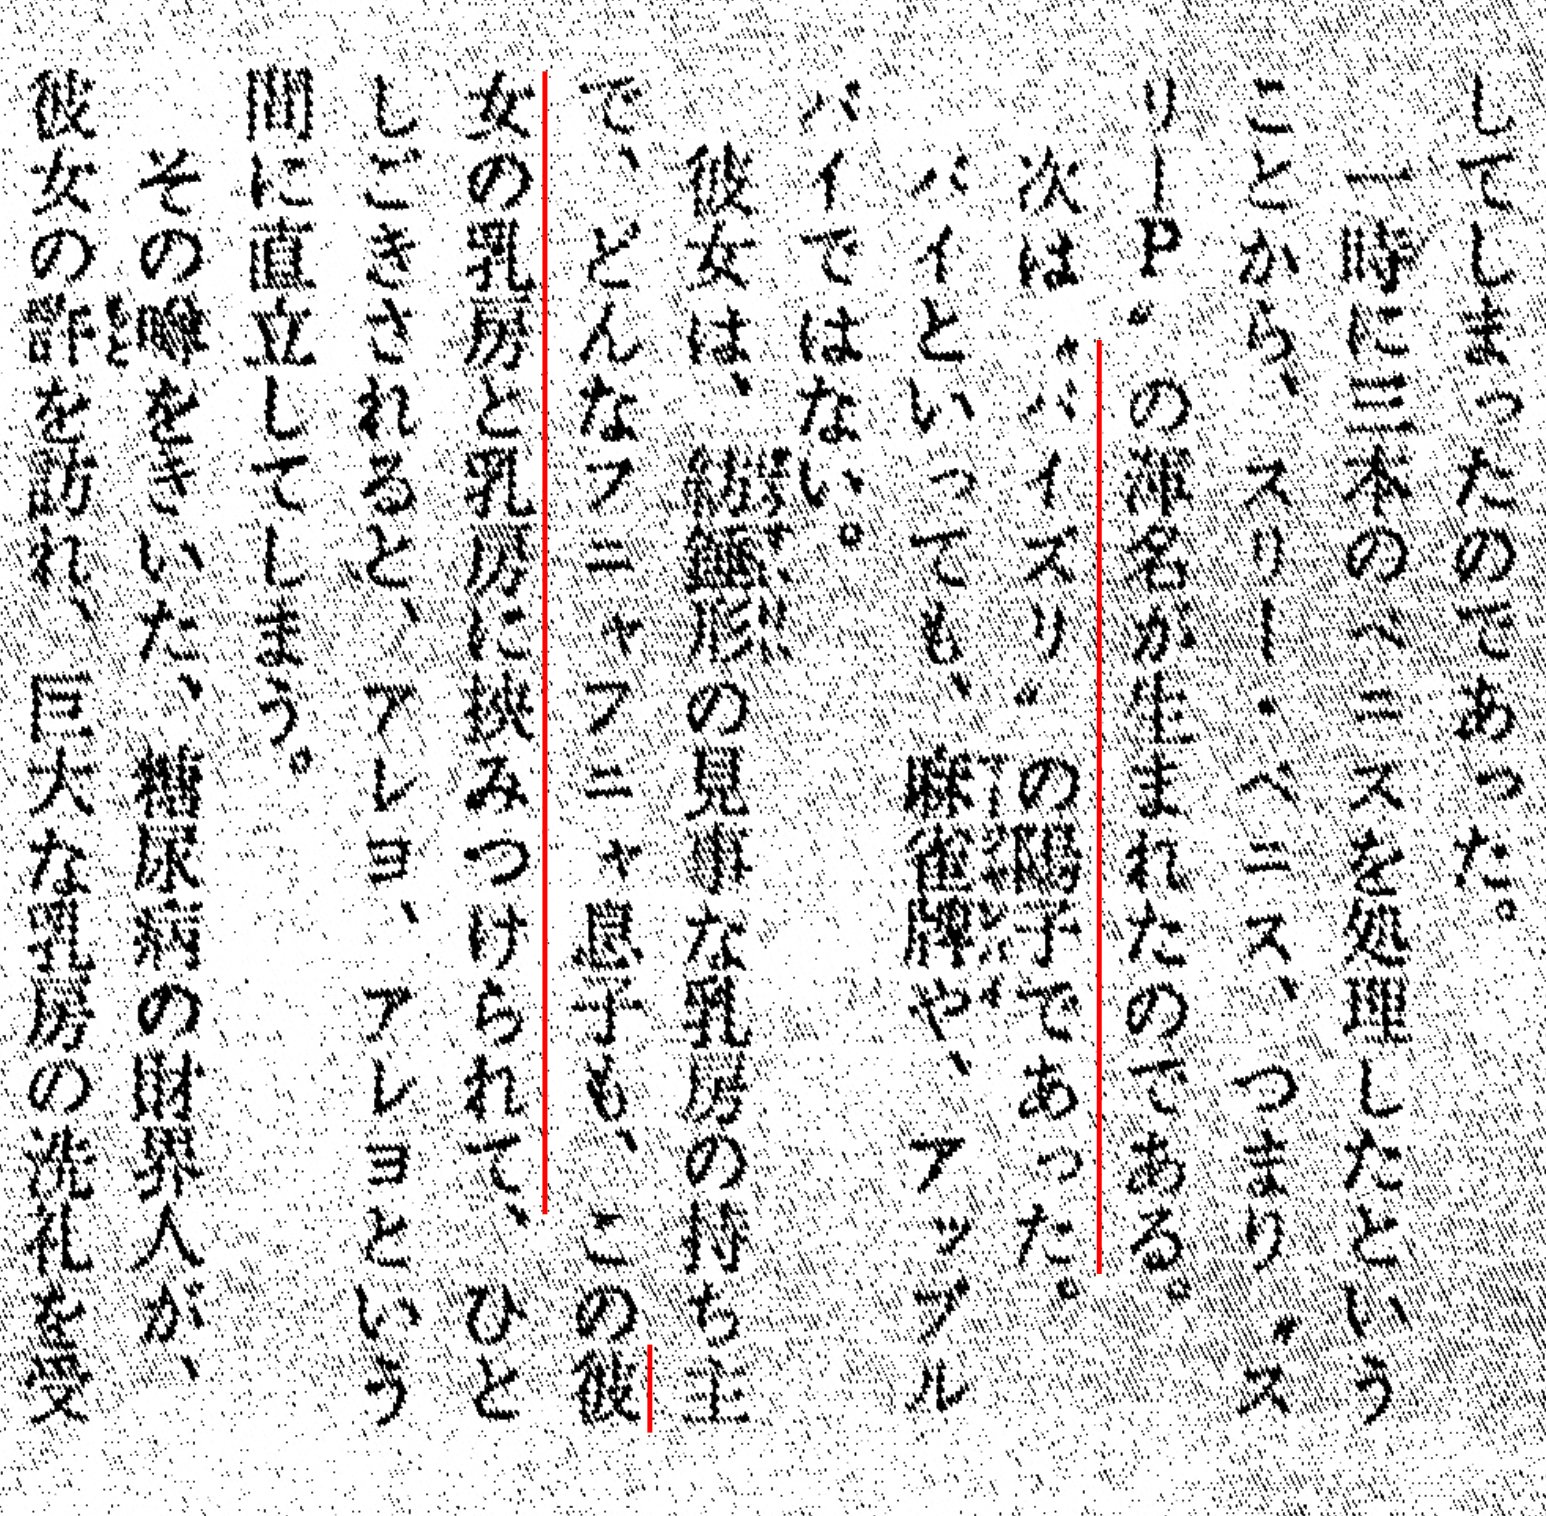 してしまったのであった。
一時に三本のペニスを処理したという
ことから、スリー・ペニス、つまり〝ス
リーP〟の渾名が生まれたのである。
次は〝パイズリ〟の陽子であった。
パイといっても、麻雀牌や、アップル
パイではない。
彼女は、紡錘形の見事な乳房の持ち主
で、どんなフニャフニャ息子も、この彼
女の乳房と乳房に挟みつけられて、ひと
しごきされると、アレヨ、アレヨという
間に直立してしまう。
その噂をきいた、糖尿病の財界人が、
彼女の許を訪れ、巨大な乳房の洗礼を受